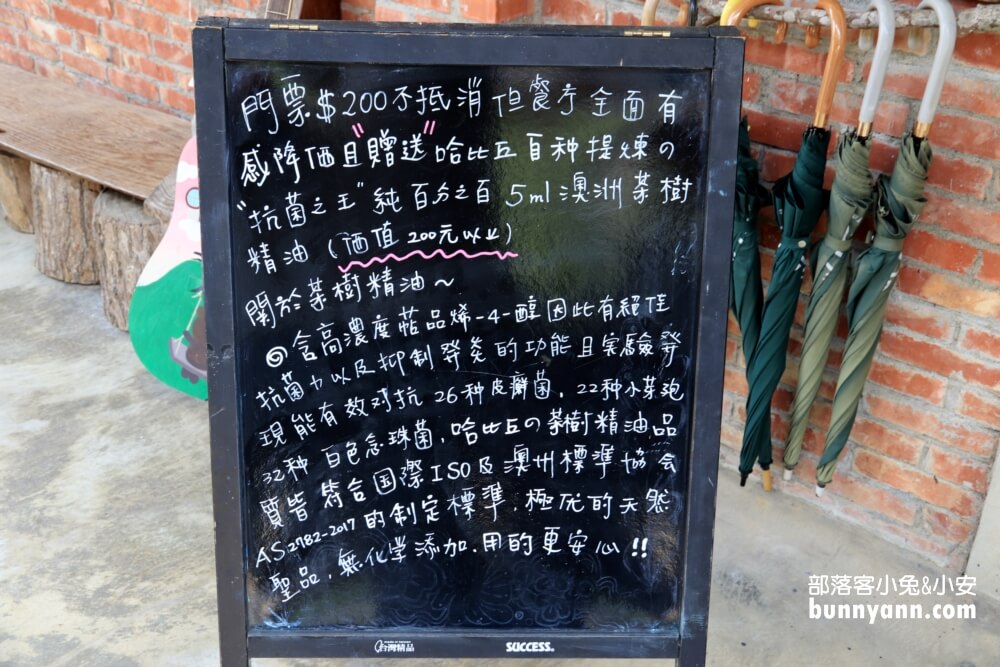 門票$200不抵消但餐厅全面有
感降価且"贈送"哈比丘百种提煉の
"抗菌之王"純百分之百 5ml澳洲茶樹
精油(価值200元以上)
關於茶樹精油~
◎含高濃度萜品烯-4-醇因此有絕佳
抗菌力以及抑制發炎的功能且实驗發
現能有效对抗26种皮癬菌.22种小茶匏
32种 白色念珠菌,哈比丘の茶樹精油品
質皆符合国際ISO及澳州標準協会
AS2782-2017的制定標準.極优的天然
聖品,無化学添加.用的更安心!!
台灣精品
SUCCESS.
部落客小兔&小安
bunnyann.com